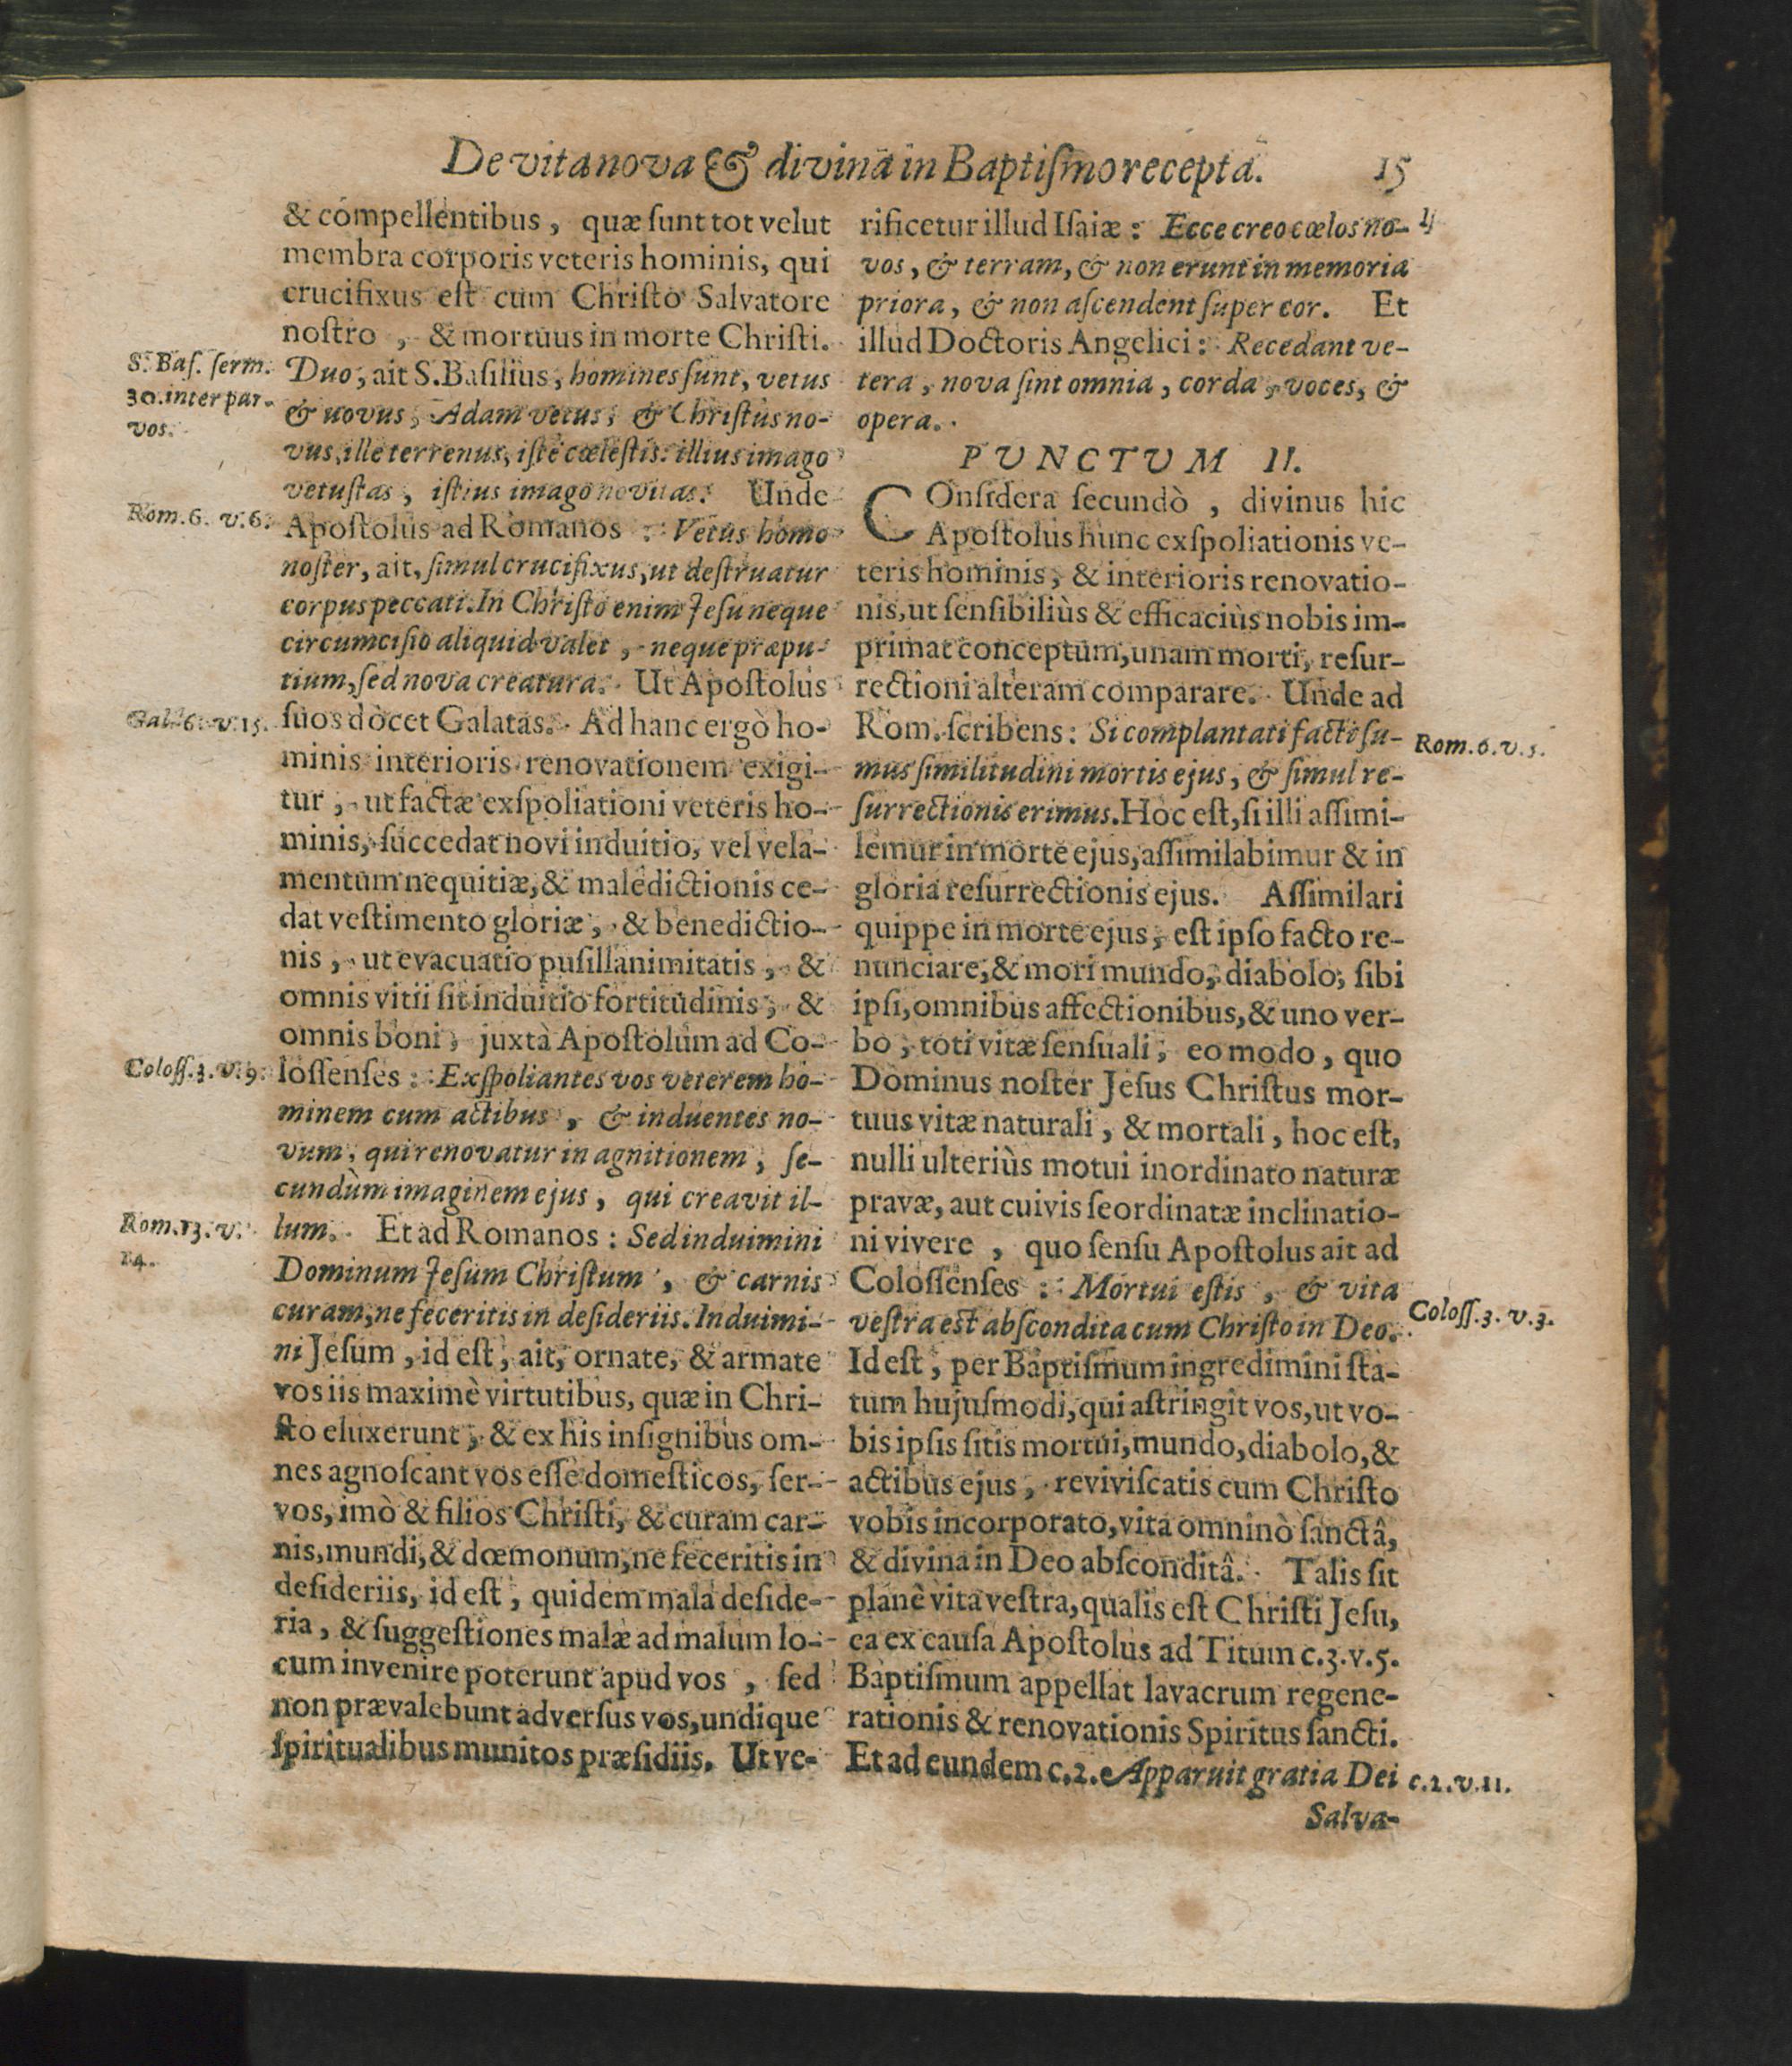 De vita nova & divinâ in Baptiſmo receptâ. 15
& compellentibus, quæ ſunt tot velut
membra corporis veteris hominis, qui
crucifixus eſt cum Chriſto Salvatore
noſtro, & mortuus in morte Chriſti.
S. Baſ. ſerm.
30. inter par-
vos.
Duo, ait S. Baſilius, homines ſunt, vetus
& novus, Adam vetus, & Chriſtus no-
vus, ille terrenus, iſte cœleſtis: illius imago
vetuſtas, iſtius imago novitas. Unde
Rom. 6. v. 6.
Apoſtolus ad Romanos: Vetus homo
noſter, ait, ſimul crucifixus, ut deſtruatur
corpus peccati. In Chriſto enim Jeſu neque
circumciſio aliquid valet, neque præpu-
tium, ſed nova creatura. Ut Apoſtolus
Gal. 6. v. 15.
ſuos docet Galatas. Ad hanc ergò ho-
minis interioris renovationem exigi-
tur, ut factæ exſpoliationi veteris ho-
minis, ſuccedat novi induitio, vel vela-
mentum nequitiæ, & maledictionis ce-
dat veſtimento gloriæ, & benedictio-
nis, ut evacuatio puſillanimitatis, &
omnis vitii ſit induitio fortitudinis, &
omnis boni, juxtà Apoſtolum ad Co-
Coloſſ. 3. v. 9.
loſſenſes: Exſpoliantes vos veterem ho-
minem cum actibus, & induentes no-
vum, qui renovatur in agnitionem, ſe-
cundùm imaginem ejus, qui creavit il-
Rom. 13. v.
14.
lum. Et ad Romanos: Sed induimini
Dominum Jeſum Chriſtum, & carnis
curam, ne feceritis in deſideriis. Induimi-
ni Jeſum, id eſt, ait, ornate, & armate
vos iis maximè virtutibus, quæ in Chri-
ſto eluxerunt, & ex his inſignibus om-
nes agnoſcant vos eſſe domeſticos, ſer-
vos, imò & filios Chriſti, & curam car-
nis, mundi, & dœmonum, ne feceritis in
deſideriis, id eſt, quidem mala deſide-
ria, & ſuggeſtiones malæ ad malum lo-
cum invenire poterunt apud vos, ſed
non prævalebunt adverſus vos, undique
ſpiritualibus munitos præſidiis. Ut ve-
rificetur illud Iſaiæ: Ecce creo cœlos no-
vos, & terram, & non erunt in memoria
priora, & non aſcendent ſuper cor. Et
illud Doctoris Angelici: Recedant ve-
tera, nova ſint omnia, corda, voces, &
opera.
PUNCTUM II.
COnſidera ſecundò, divinus hic
Apoſtolus hunc exſpoliationis ve-
teris hominis, & interioris renovatio-
nis, ut ſenſibiliùs & efficaciùs nobis im-
primat conceptum, unam morti, reſur-
rectioni alteram comparare. Unde ad
Rom. ſcribens: Si complantati facti ſu-
Rom. 6. v. 5.
mus ſimilitudini mortis ejus, & ſimul re-
ſurrectionis erimus. Hoc eſt, ſi illi aſſimi-
lemur in morte ejus, aſſimilabimur & in
gloria reſurrectionis ejus. Aſſimilari
quippe in morte ejus, eſt ipſo facto re-
nunciare, & mori mundo, diabolo, ſibi
ipſi, omnibus affectionibus, & uno ver-
bo, toti vitæ ſenſuali, eo modo, quo
Dominus noſter Jeſus Chriſtus mor-
tuus vitæ naturali, & mortali, hoc eſt,
nulli ulteriùs motui inordinato naturæ
pravæ, aut cuivis ſeordinatæ inclinatio-
ni vivere, quo ſenſu Apoſtolus ait ad
Coloſſenſes: Mortui eſtis, & vita
Coloſſ. 3. v. 3.
veſtra eſt abſcondita cum Chriſto in Deo.
Id eſt, per Baptiſmum ingredimini ſta-
tum hujuſmodi, qui aſtringit vos, ut vo-
bis ipſis ſitis mortui, mundo, diabolo, &
actibus ejus, reviviſcatis cum Chriſto
vobis incorporato, vita omninò ſanctâ,
& divina in Deo abſconditâ. Talis ſit
planè vita veſtra, qualis eſt Chriſti Jeſu,
ea ex cauſa Apoſtolus ad Titum c. 3. v. 5.
Baptiſmum appellat lavacrum regene-
rationis & renovationis Spiritus ſancti.
Et ad eundem c. 2. Apparuit gratia Dei
c. 2. v. 11.
Salva-